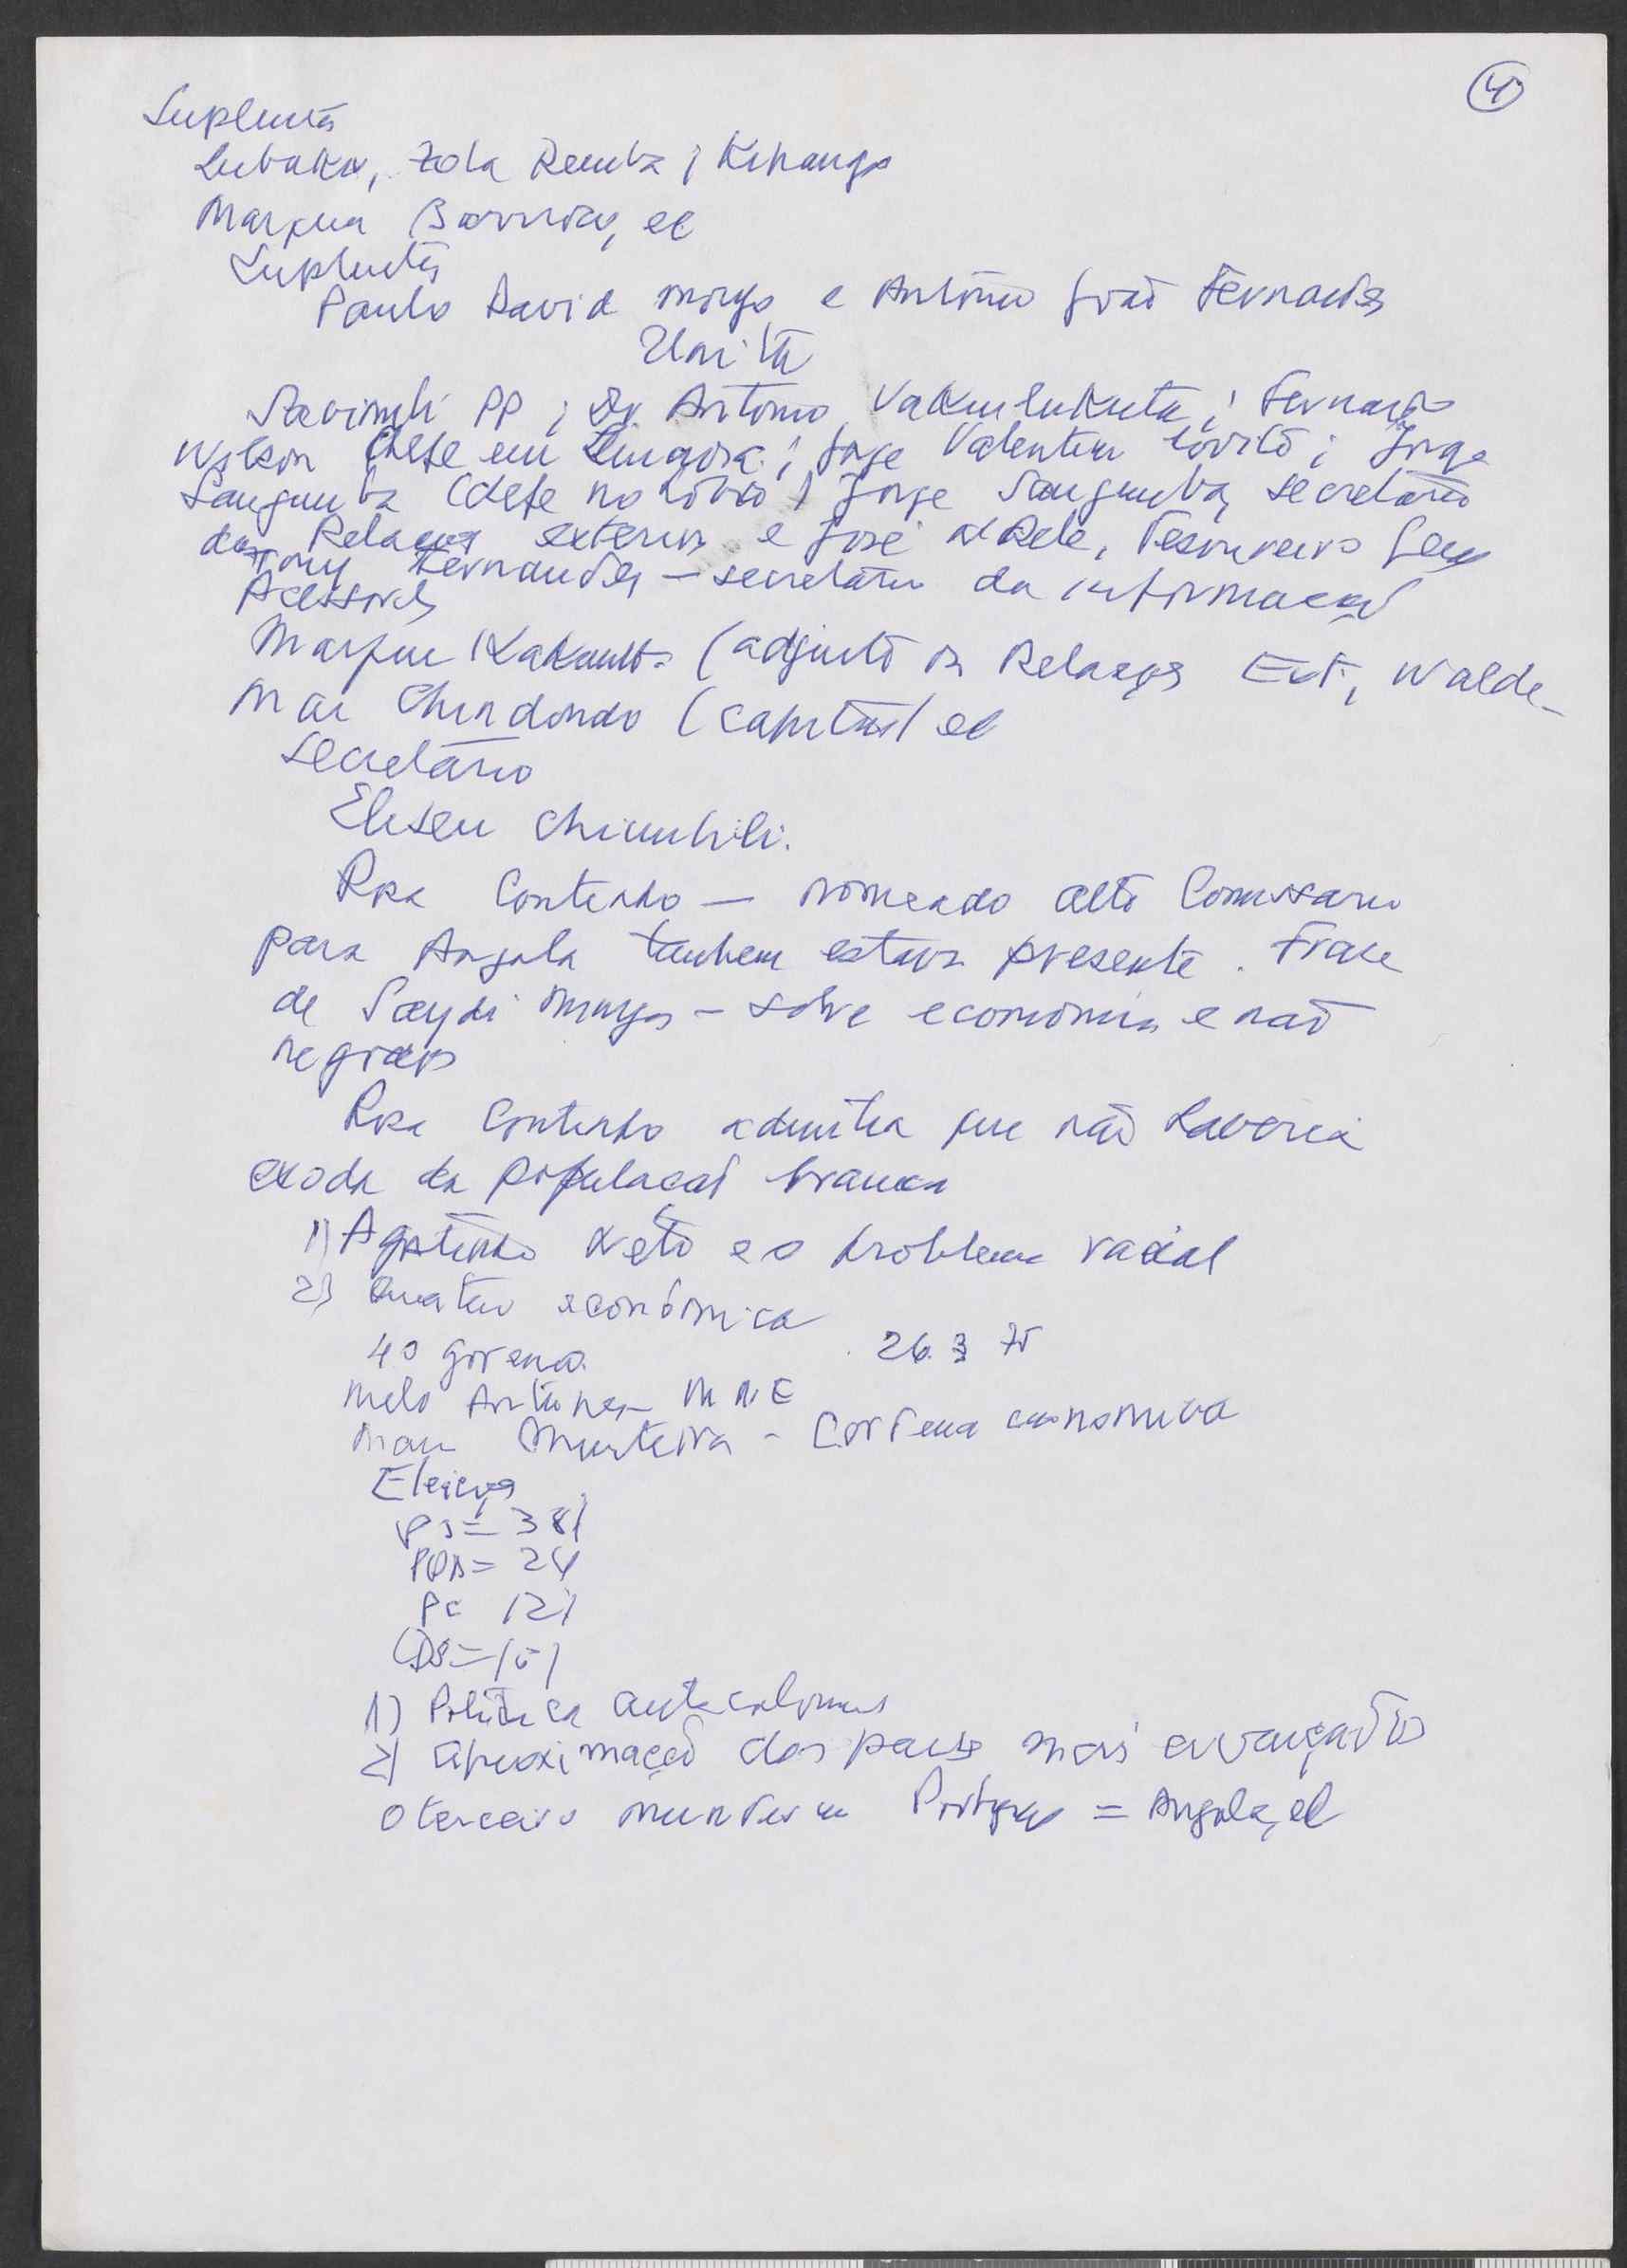 4
Suplentes
Lubaka, Zola Remba; Kihanga
Barrica, el
Suplentes
Paulo David e António João Fernandes
Unita
Savimbi PP; Dr António Vakulukuta; Fernando
Wilson Chefe em; Jorge Valentim Lóvito; Jorge
Sangumba (chefe no Lobito) Jorge Sangumba, secretário
das Relações exterior e José N'Dele, Tesoureiro Geral
Tony Fernandes – secretário da informação
Acessores
(adjunto R Relações Ext, Walde-
mar Chindondo (capitão) el
Secretário
Eliseu Chimbili.
Rosa Coutinho – nomeado alto Comissario
para Angola tambem estava presente. Frase
de Saydi Mingas – sobre economia e não
negrocio
Rosa Coutinho admitia que não haveria
exodo da população branca
1) Agostinho Neto e o problema racial
2) Questão económica
4º governo. 26.3 75
Melo Antunes – M N E
Mario Murteira – Cordena economica
Eleições
PS = 38%
PPD = 24
PC 12%
CDS =
1) Politica anticolonias
2) aproximação dos paises mais avançados
O terceiro Portugal = Angola, el